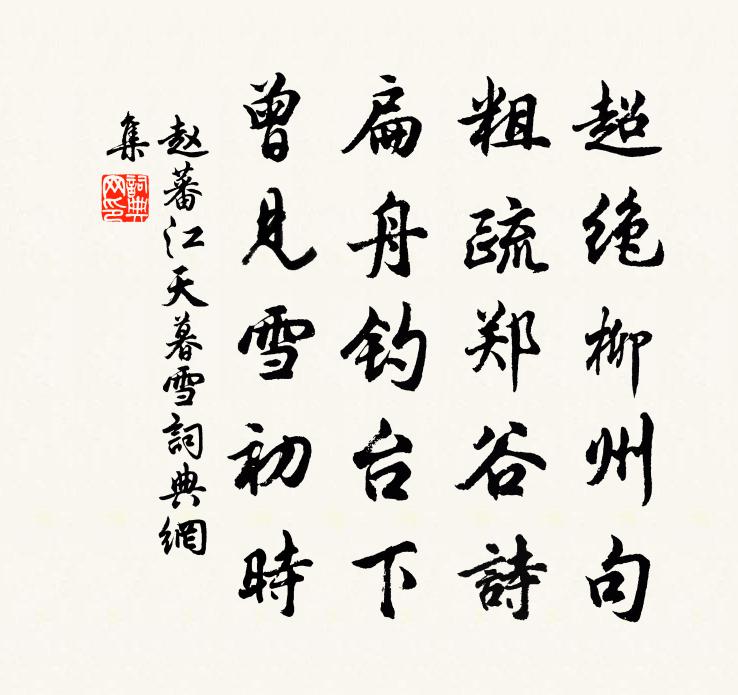 超绝柳州句
粗疏郑谷詩
扁舟钓台下
曾見雪初時
赵蕃江天暮雪詞典網
集
詞典網印